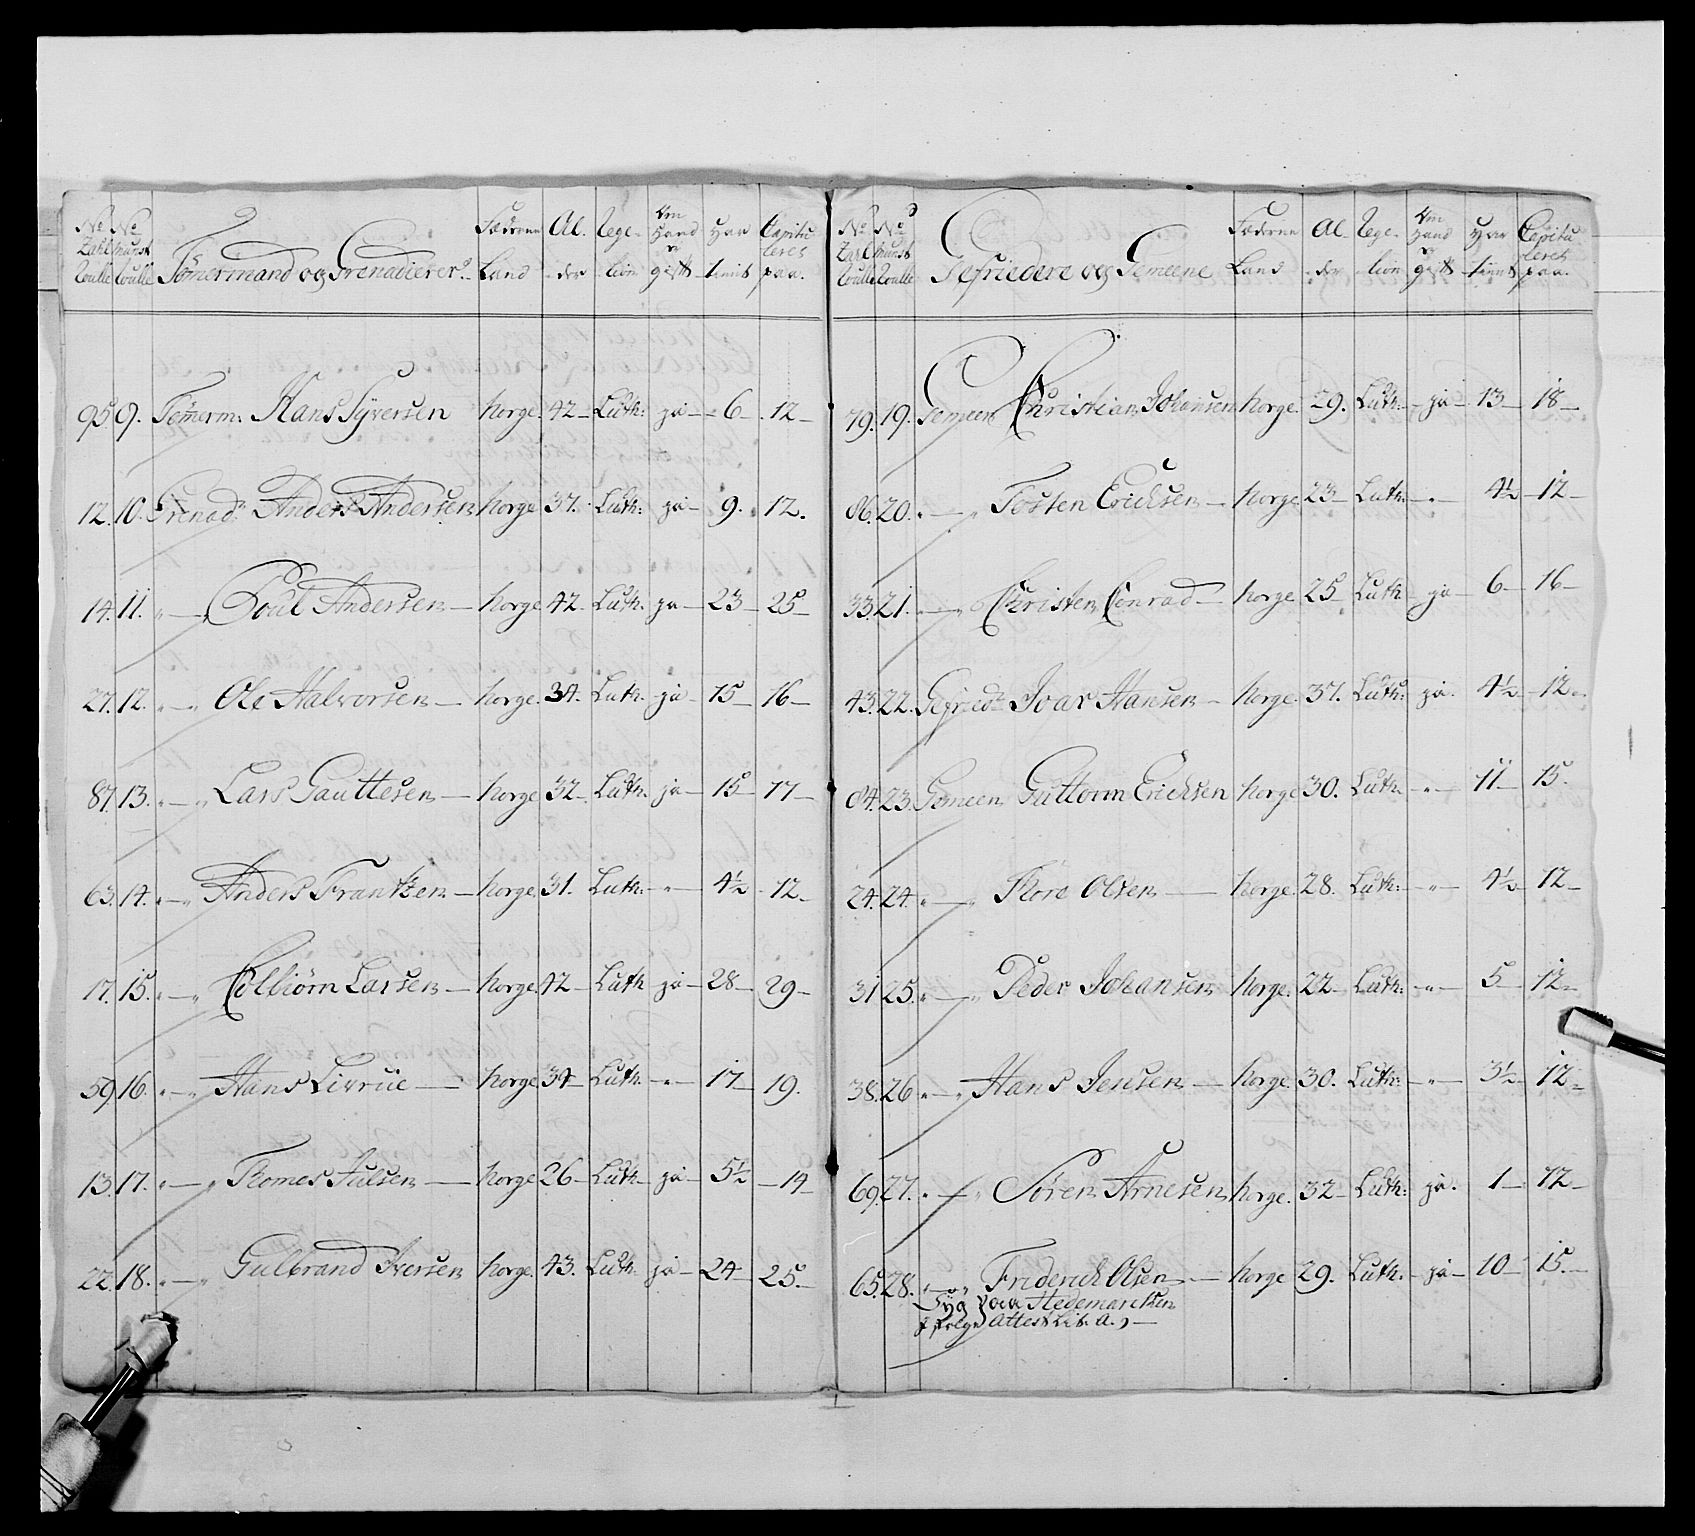 No No Om
Zahl Munst Tömermand og Grenaderer Fæderne Al- Rege- Hand og Har Capitu
Roulle Roulle Land der lion gift tient leret paa.
95. 9. Tömerm: Hans Syversen Norge. 42 Luth: ja 6 12
12. 10. Grenad: Anders Andersen Norge 37. Luth: ja 9. 12.
14. 11. " Poul Andersen Norge 42 Luth. ja 23 25
27. 12. " Ole Halvorsen Norge. 34 Luth. ja 15 16
87. 13. " Lars Gauttesen Norge 32 Luth. ja 15 17
63. 14. " Anders Frantzen Norge. 31. Luth: " 4½ 12
17. 15. " Colbiörn Larsen Norge. 42 Luth ja 28 29
59. 16. " Hans Livrüe Norge 34 Luth " 17 19.
13. 17. " Thomes Julsen Norge 26 Luth ja 5½ 14
22. 18. " Gulbrand Iversen Norge. 43. Luth. ja 24 25.
No No Om
Zahl Munst Gefriedere og Gemeene Fæderne Al- Rege- Hand og Har Capitu
Roulle Roulle Land der lion gift tient leret paa.
79. 19. Gemeen Christian Johansen Norge. 29. Luth: ja 13 18
86. 20. " Tosten Ericksen Norge 23 Luth: " 4½ 12
33. 21. " Christen Conrad Norge 25 Luth ja 6 16
43. 22. Gefried: Ivar Hansen Norge. 37. Luth: ja. 4½ 12
84. 23. Gemeen Guttorm Ericksen Norge 30. Luth. " 11 15.
24. 24. " Thore Olsen Norge. 28. Luth: " 4½ 12
31. 25. " Peder Johansen Norge. 22 Luth: " 5 12
38. 26 " Hans Jensen Norge. 30. Luth: " 3½ 12
69. 27. " Sören Arnesen Norge. 32 Luth: ja. 1 12
65. 28. " Friderich Olsen Norge 29. Luth. ja 10 15.
Syg paa Hedemarcken
i følge Attest Lit: A.)